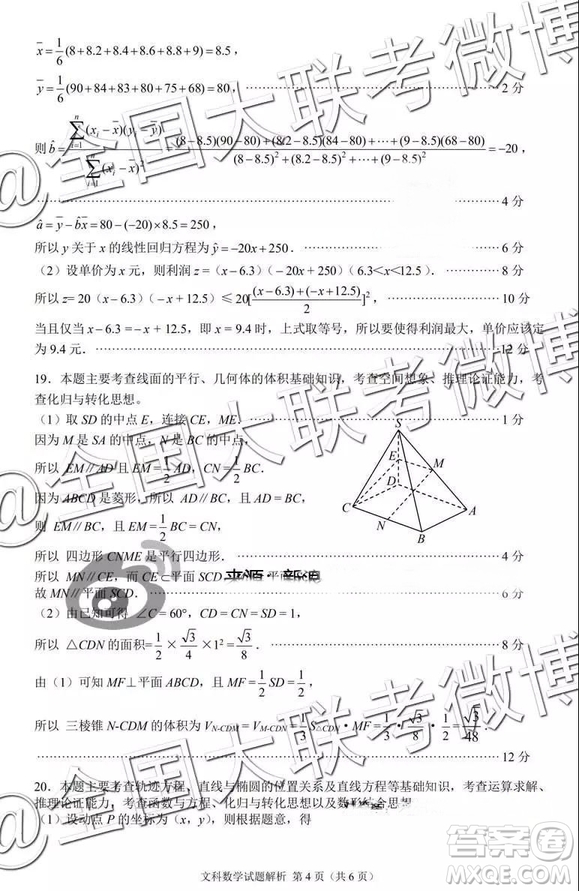 x̄ = 1/6(8+8.2+8.4+8.6+8.8+9) = 8.5，
ȳ = 1/6(90+84+83+80+75+68) = 80， 2 分
则 b̂ = Σ(xᵢ − x̄)(yᵢ − ȳ) / Σ(xᵢ − x̄)² = [(8−8.5)(90−80)+(8.2−8.5)(84−80)+⋯+(9−8.5)(68−80)] / [(8−8.5)²+(8.2−8.5)²+⋯+(9−8.5)²] = −20，
4 分
â = ȳ − b̂x̄ = 80−(−20)×8.5 = 250，
所以 y 关于 x 的线性回归方程为 ŷ = −20x+250． 6 分
（2）设单价为 x 元，则利润 z =（x−6.3）（−20x+250）（6.3＜x＜12.5）． 8 分
所以 z= 20（x−6.3）（−x+12.5）≤20[((x−6.3)+(−x+12.5))/2]²， 10 分
当且仅当 x−6.3 =−x+12.5，即 x = 9.4 时，上式取等号，所以要使得利润最大，单价应该定
为 9.4 元． 12 分
19．本题主要考查线面的平行、几何体的体积基础知识，考查空间想象、推理论证能力，考
查化归与转化思想。
（1）取 SD 的中点 E，连接 CE，ME． 1 分
因为 M 是 SA 的中点，N 是 BC 的中点，
所以 EM // AD 且 EM = 1/2 AD，CN = 1/2 BC．
因为 ABCD 是菱形，所以 AD // BC，且 AD = BC，
则 EM // BC，且 EM = 1/2 BC = CN，
所以 四边形 CNME 是平行四边形． 4 分
所以 MN // CE，而 CE⊂平面 SCD
故 MN // 平面 SCD． 6 分
S
E
M
D
C
A
N
B
（2）由已知可得 ∠C = 60°，CD = CN = SD = 1，
所以 △CDN 的面积= 1/2 × √3/4 ×1² = √3/8． 8 分
由（1）可知 MF⊥平面 ABCD，且 MF = 1/2 SD = 1/2，
所以 三棱锥 N-CDM 的体积为 V_N-CDM = V_M-CDN = 1/3 S△CDN·MF = 1/3 · √3/8 · 1/2 = √3/48．
12 分
20．本题主要考查轨迹方程，直线与椭圆的位置关系及直线方程等基础知识，考查运算求解、
推理论证能力，考查函数与方程、化归与转化思想以及数形结合思想
（1）设动点 P 的坐标为（x，y），则根据题意，得
文科数学试题解析 第 4 页（共 6 页）
@全国大联考微博
@全国大联考微博
@全国大联考微博
答案圈